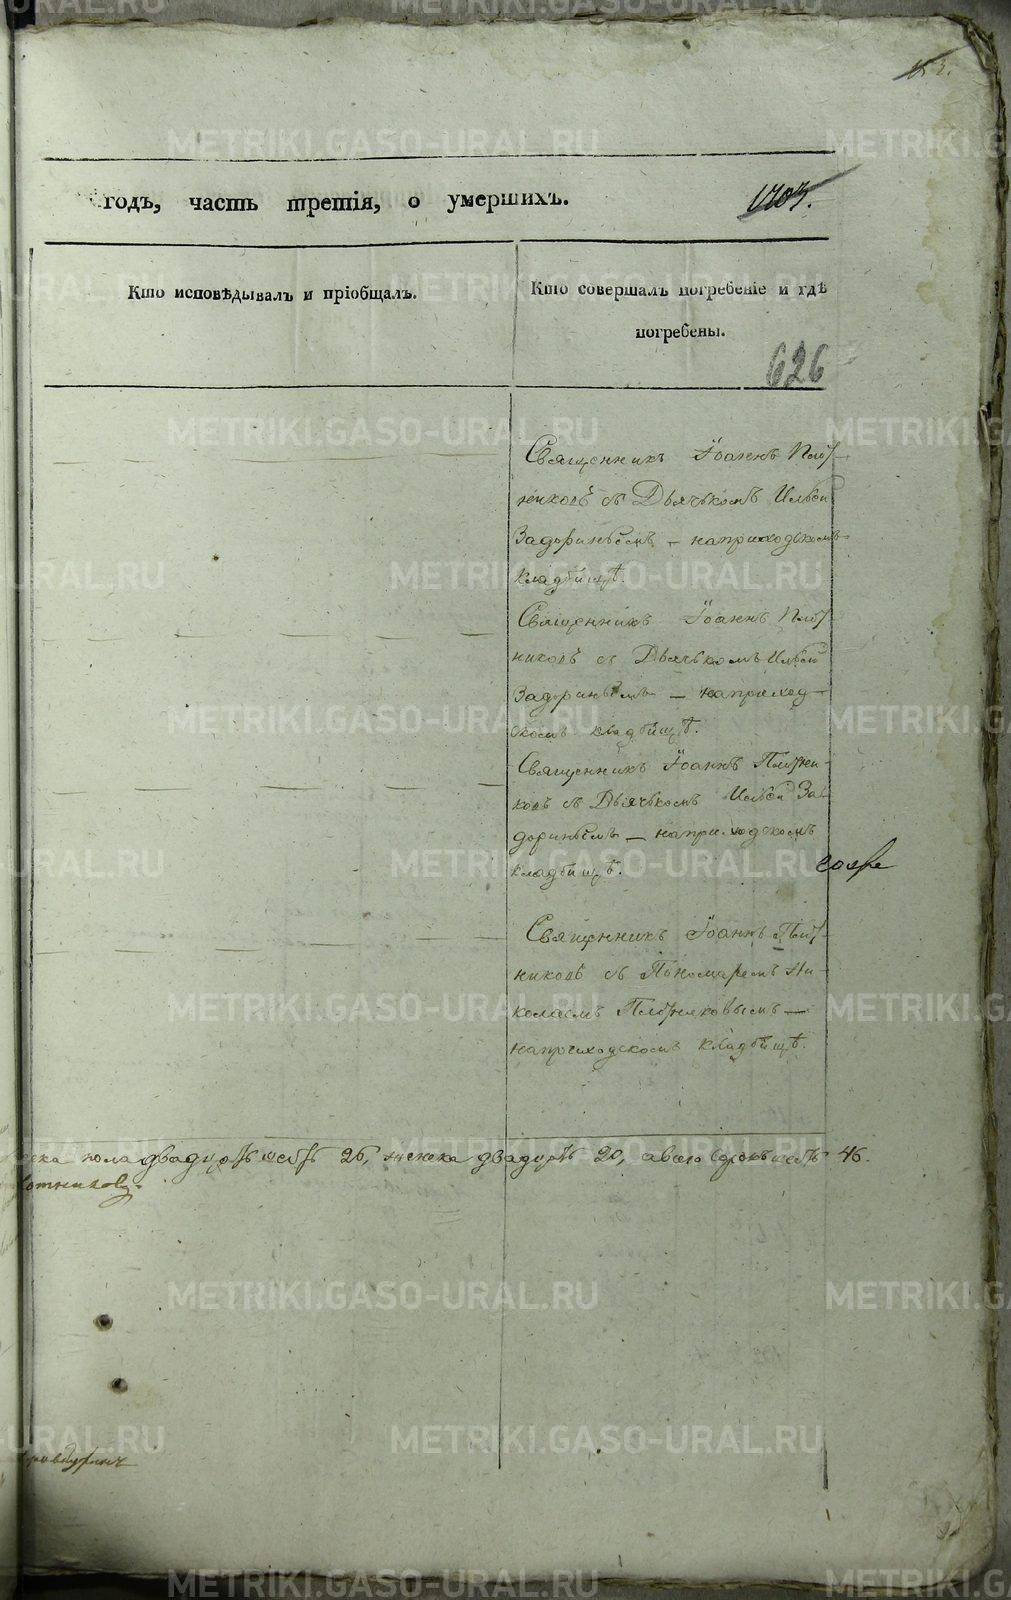 годъ, часть третія, о умершихъ.
1703.
Кто исповѣдывалъ и пріобщалъ.
Кто совершалъ погребеніе и гдѣ
погребены.
626
Священникъ Іоаннъ Плот-
никовъ съ Дьячькомъ Ильей
Задоринымъ — наприходскомъ
кладбищѣ.
Священникъ Іоаннъ Плот-
никовъ съ Дьячькомъ Ильей
Задоринымъ — наприход-
скомъ кладбищѣ.
Священникъ Іоаннъ Плотни-
ковъ съ Дьячькомъ Ильей За-
доринымъ — наприходскомъ
кладбищѣ.
Священникъ Іоаннъ Плот-
никовъ съ Пономаремъ Ни-
колаемъ Плотниковымъ —
наприходскомъ кладбищѣ.
пола двадцать шесть 26, женска двадцать 20, авсего сорокъ шесть 46.
METRIKI.GASO-URAL.RU